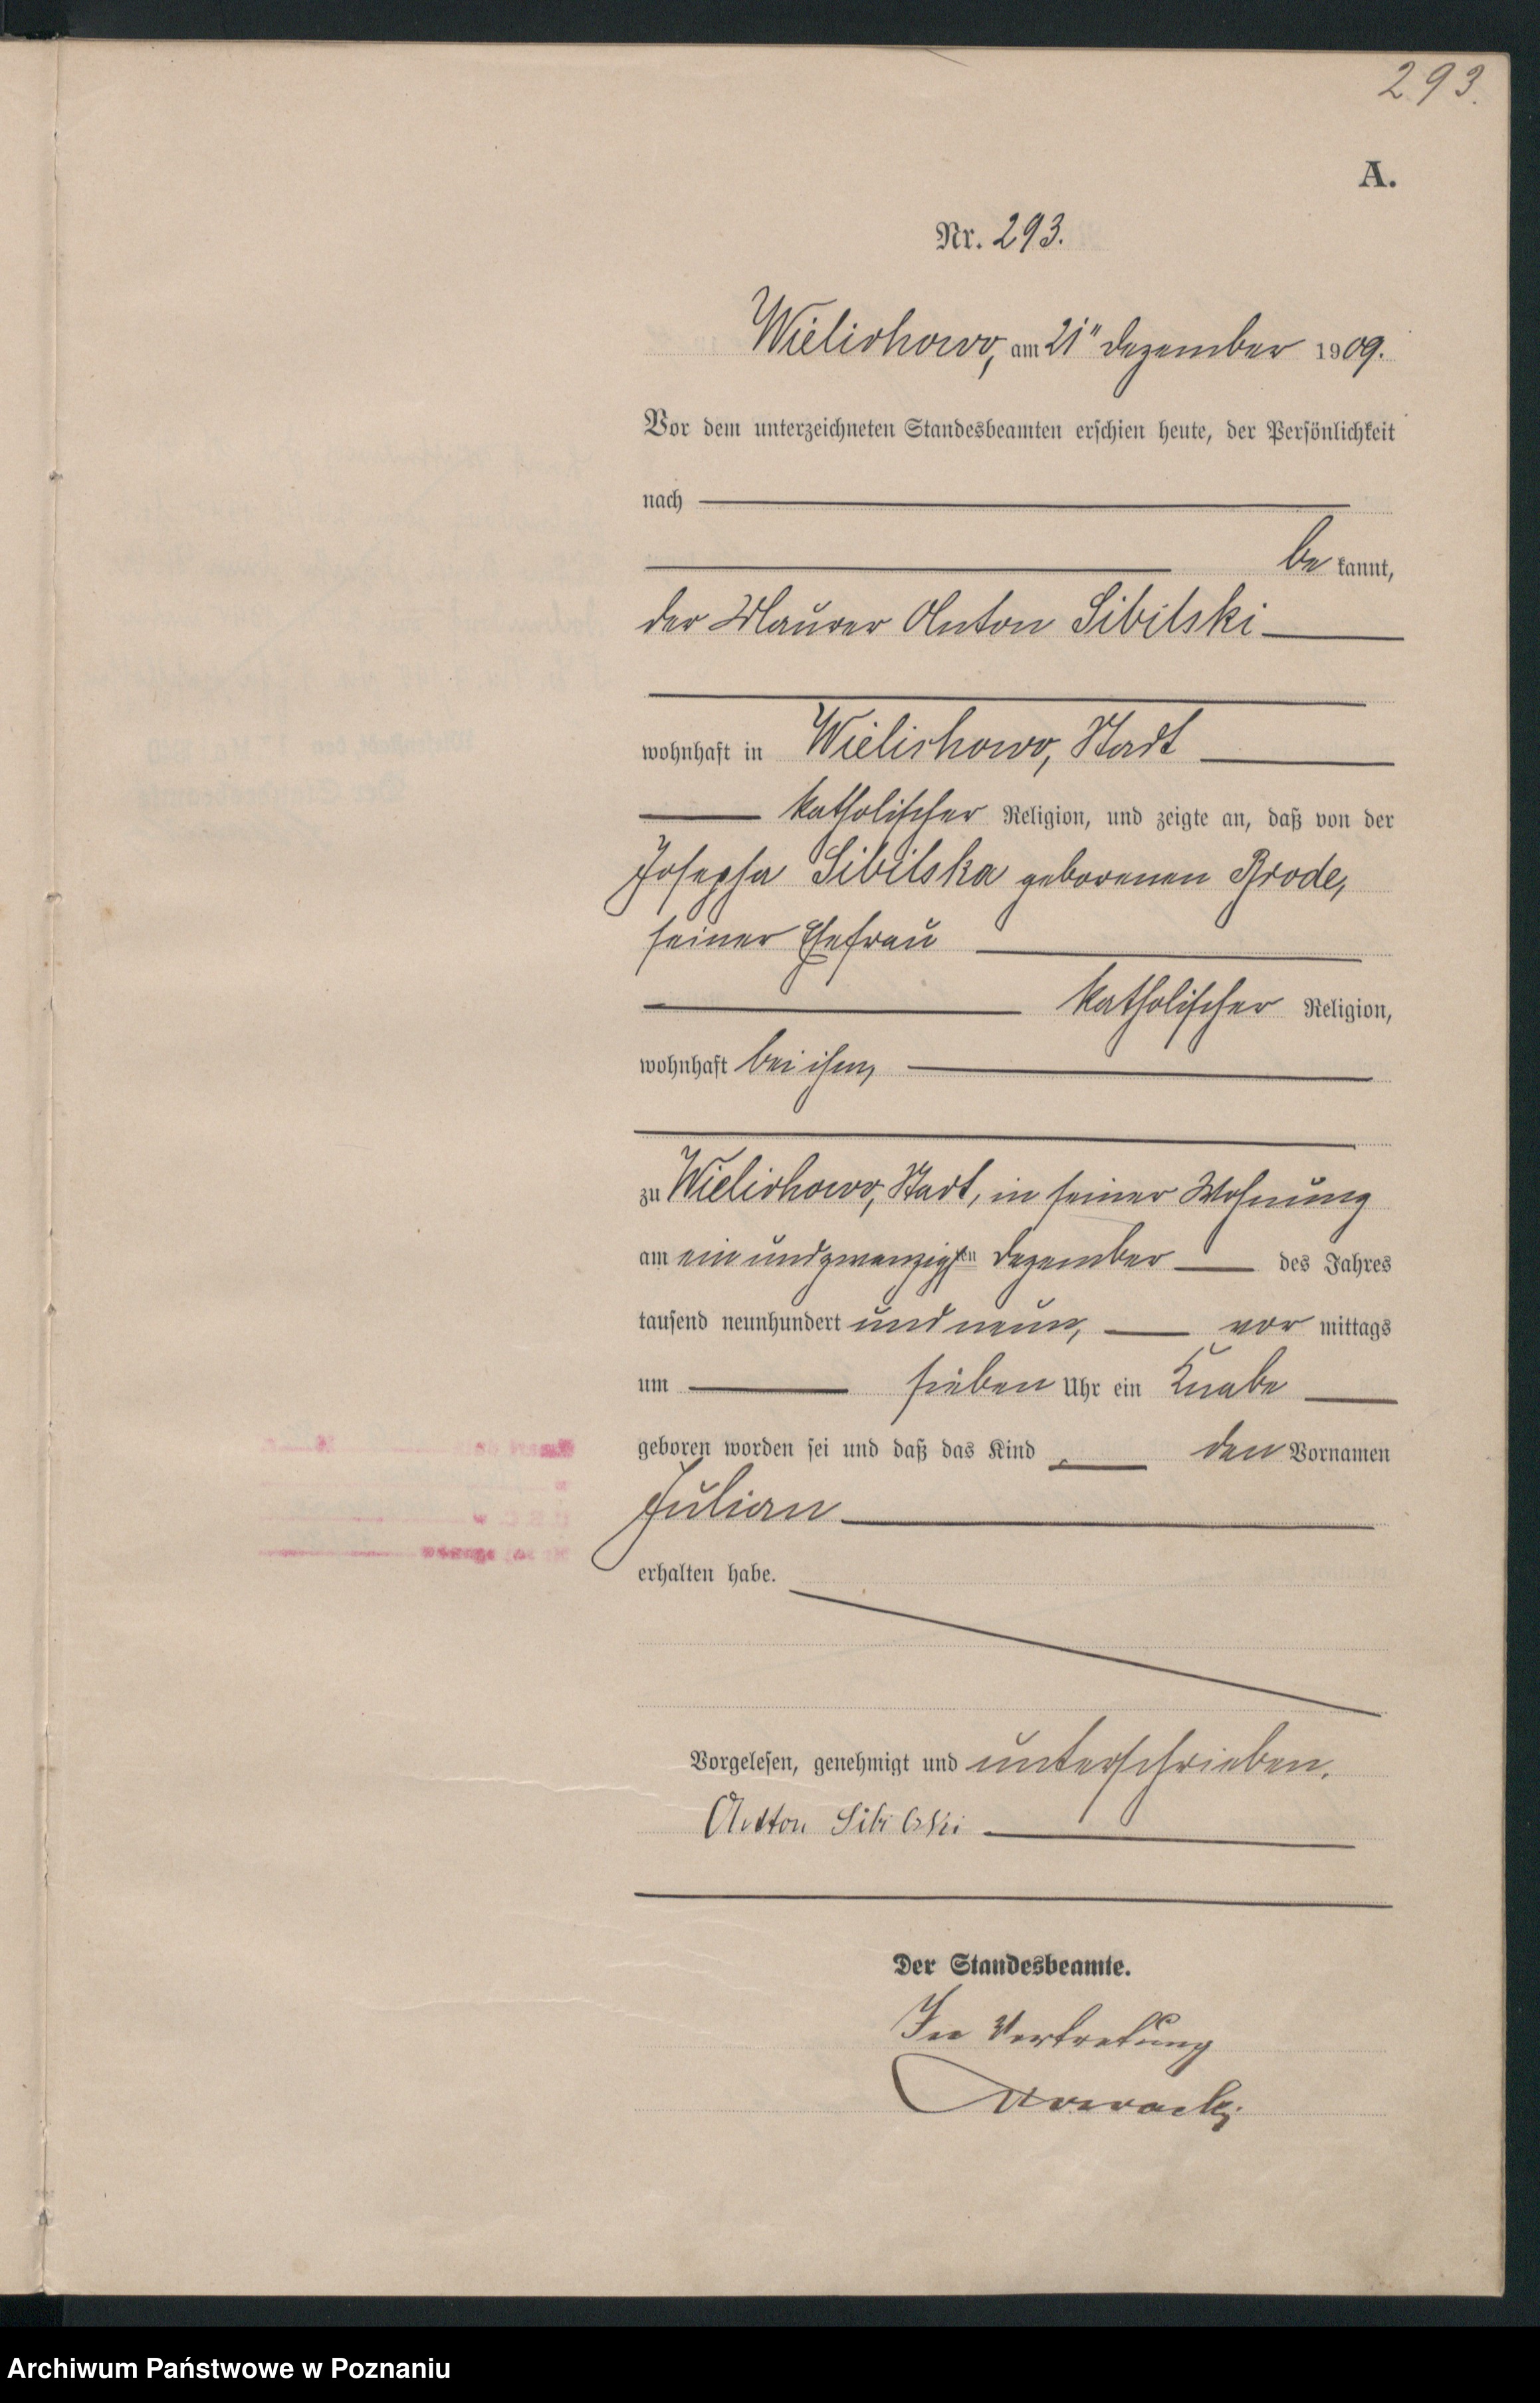 293.
A.
Nr. 293.
Wielichowo, am 21ten Dezember 1909.
Vor dem unterzeichneten Standesbeamten erschien heute, der Persönlichkeit
nach
be kannt,
der Maurer Anton Sibilski
wohnhaft in Wielichowo, Stadt
katholischer Religion, und zeigte an, daß von der
Josepha Sibilska geborenen Brode,
seiner Ehefrau
katholischer Religion,
wohnhaft bei ihm,
zu Wielichowo, Stadt, in seiner Wohnung
am ein und zwanzigsten Dezember des Jahres
tausend neunhundert und neun, vor mittags
um sieben Uhr ein Knabe
geboren worden sei und daß das Kind den Vornamen
Julian
erhalten habe.
Vorgelesen, genehmigt und unterschrieben.
Anton Sibilski
Der Standesbeamte.
In Vertretung
Nowacki
Archiwum Państwowe w Poznaniu